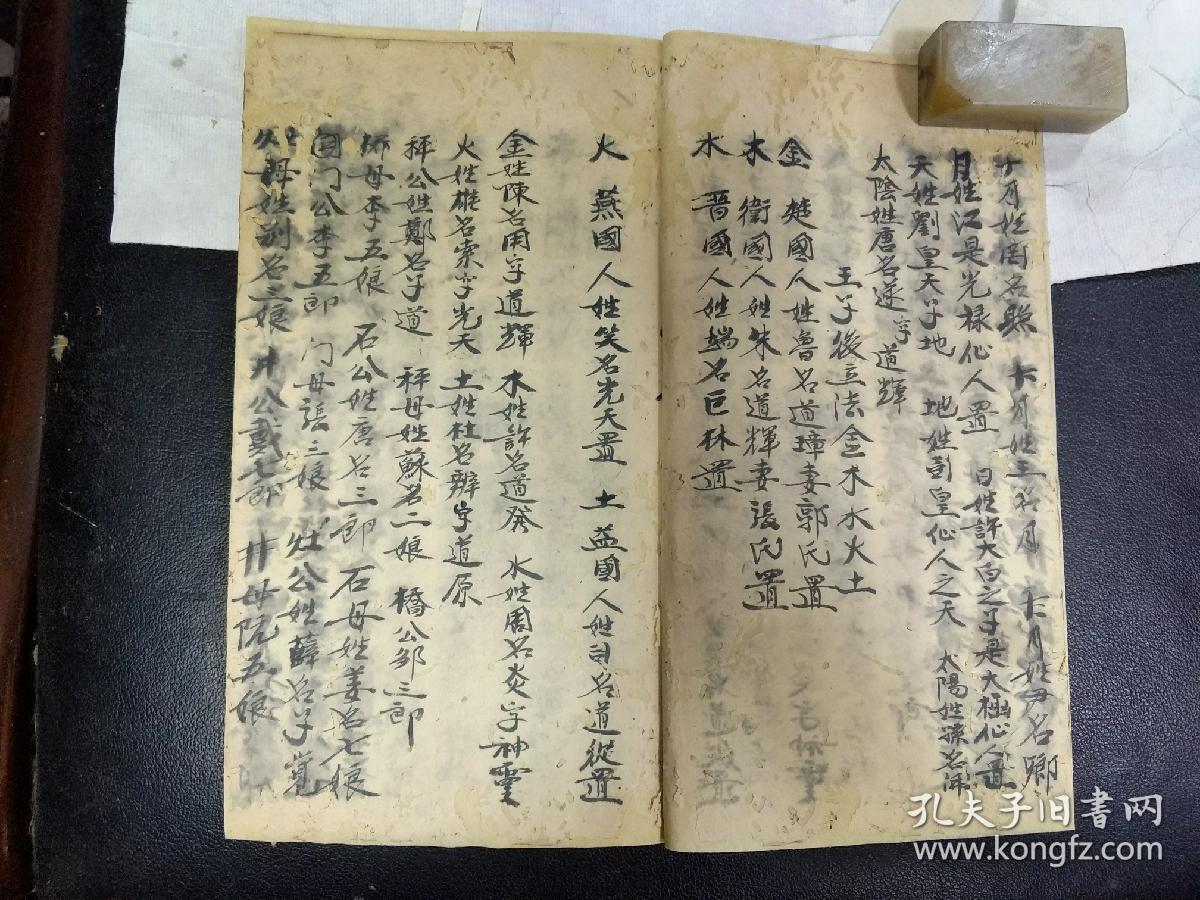 十月姓周名 十月姓王名月 十月姓尹名卿
月姓江是光禄仙人置 日姓許大白之子是大極仙人置
天姓劉皇天子地 地姓彭皇仙人之天 太陽姓孫名
太陰姓唐名遂字道輝
王子後立法金木水火土
金 楚國人姓魯名道璋妻郭氏置
木 衛國人姓朱名道輝妻張氏置
水 晋國人姓端名巨林置
火 燕國人姓笑名光天置 土 益國人姓司名道從置
金姓陳名用字道輝 木姓許名道發 水姓周名炎字神靈
火姓雄名索字光天 土姓杜名辨字道原
秤公姓鄭名子道 秤母姓蘇名二娘 橋公鄒三郎
母李五娘 石公姓唐名三郎 石母姓姜名七娘
門公李五郎 门母張三娘 灶公姓薛名子
母姓別名三娘 井公戴七郎 井母阮五娘
孔夫子旧书网
www.kongfz.com